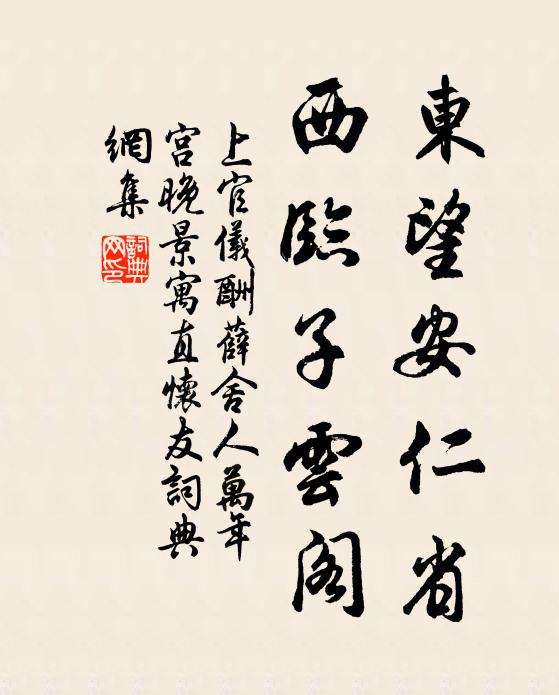 東望安仁省
西臨子雲閣
上官儀酬薛舍人萬年
宮晚景寓直懷友詞典
網集
詞典
网印